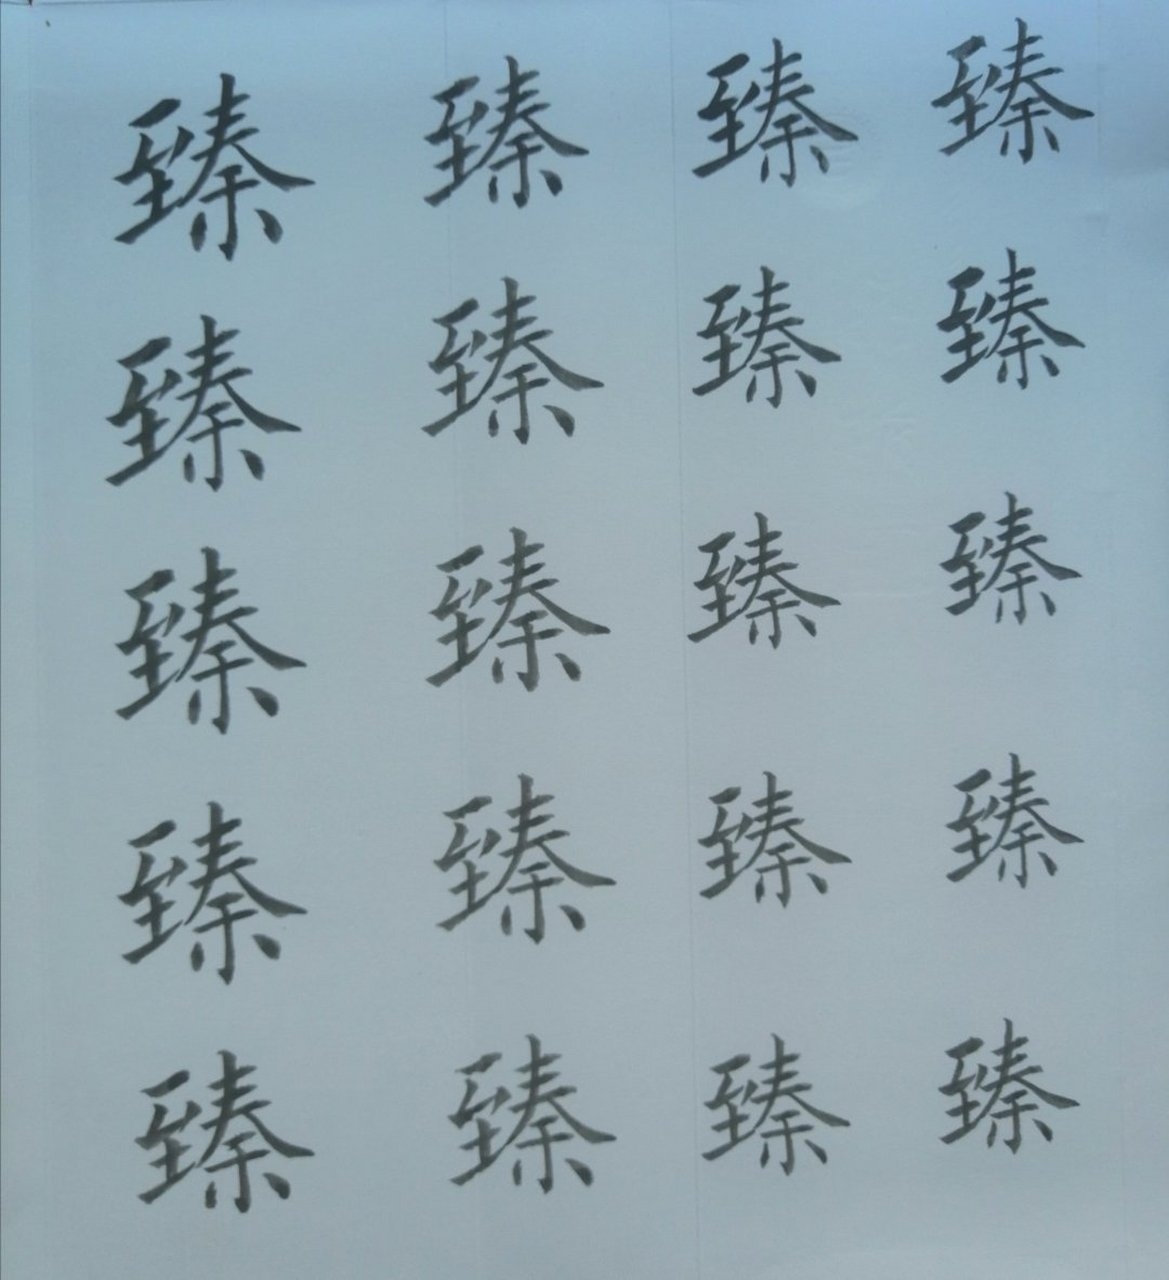 臻臻臻臻
臻臻臻臻
臻臻臻臻
臻臻臻臻
臻臻臻臻